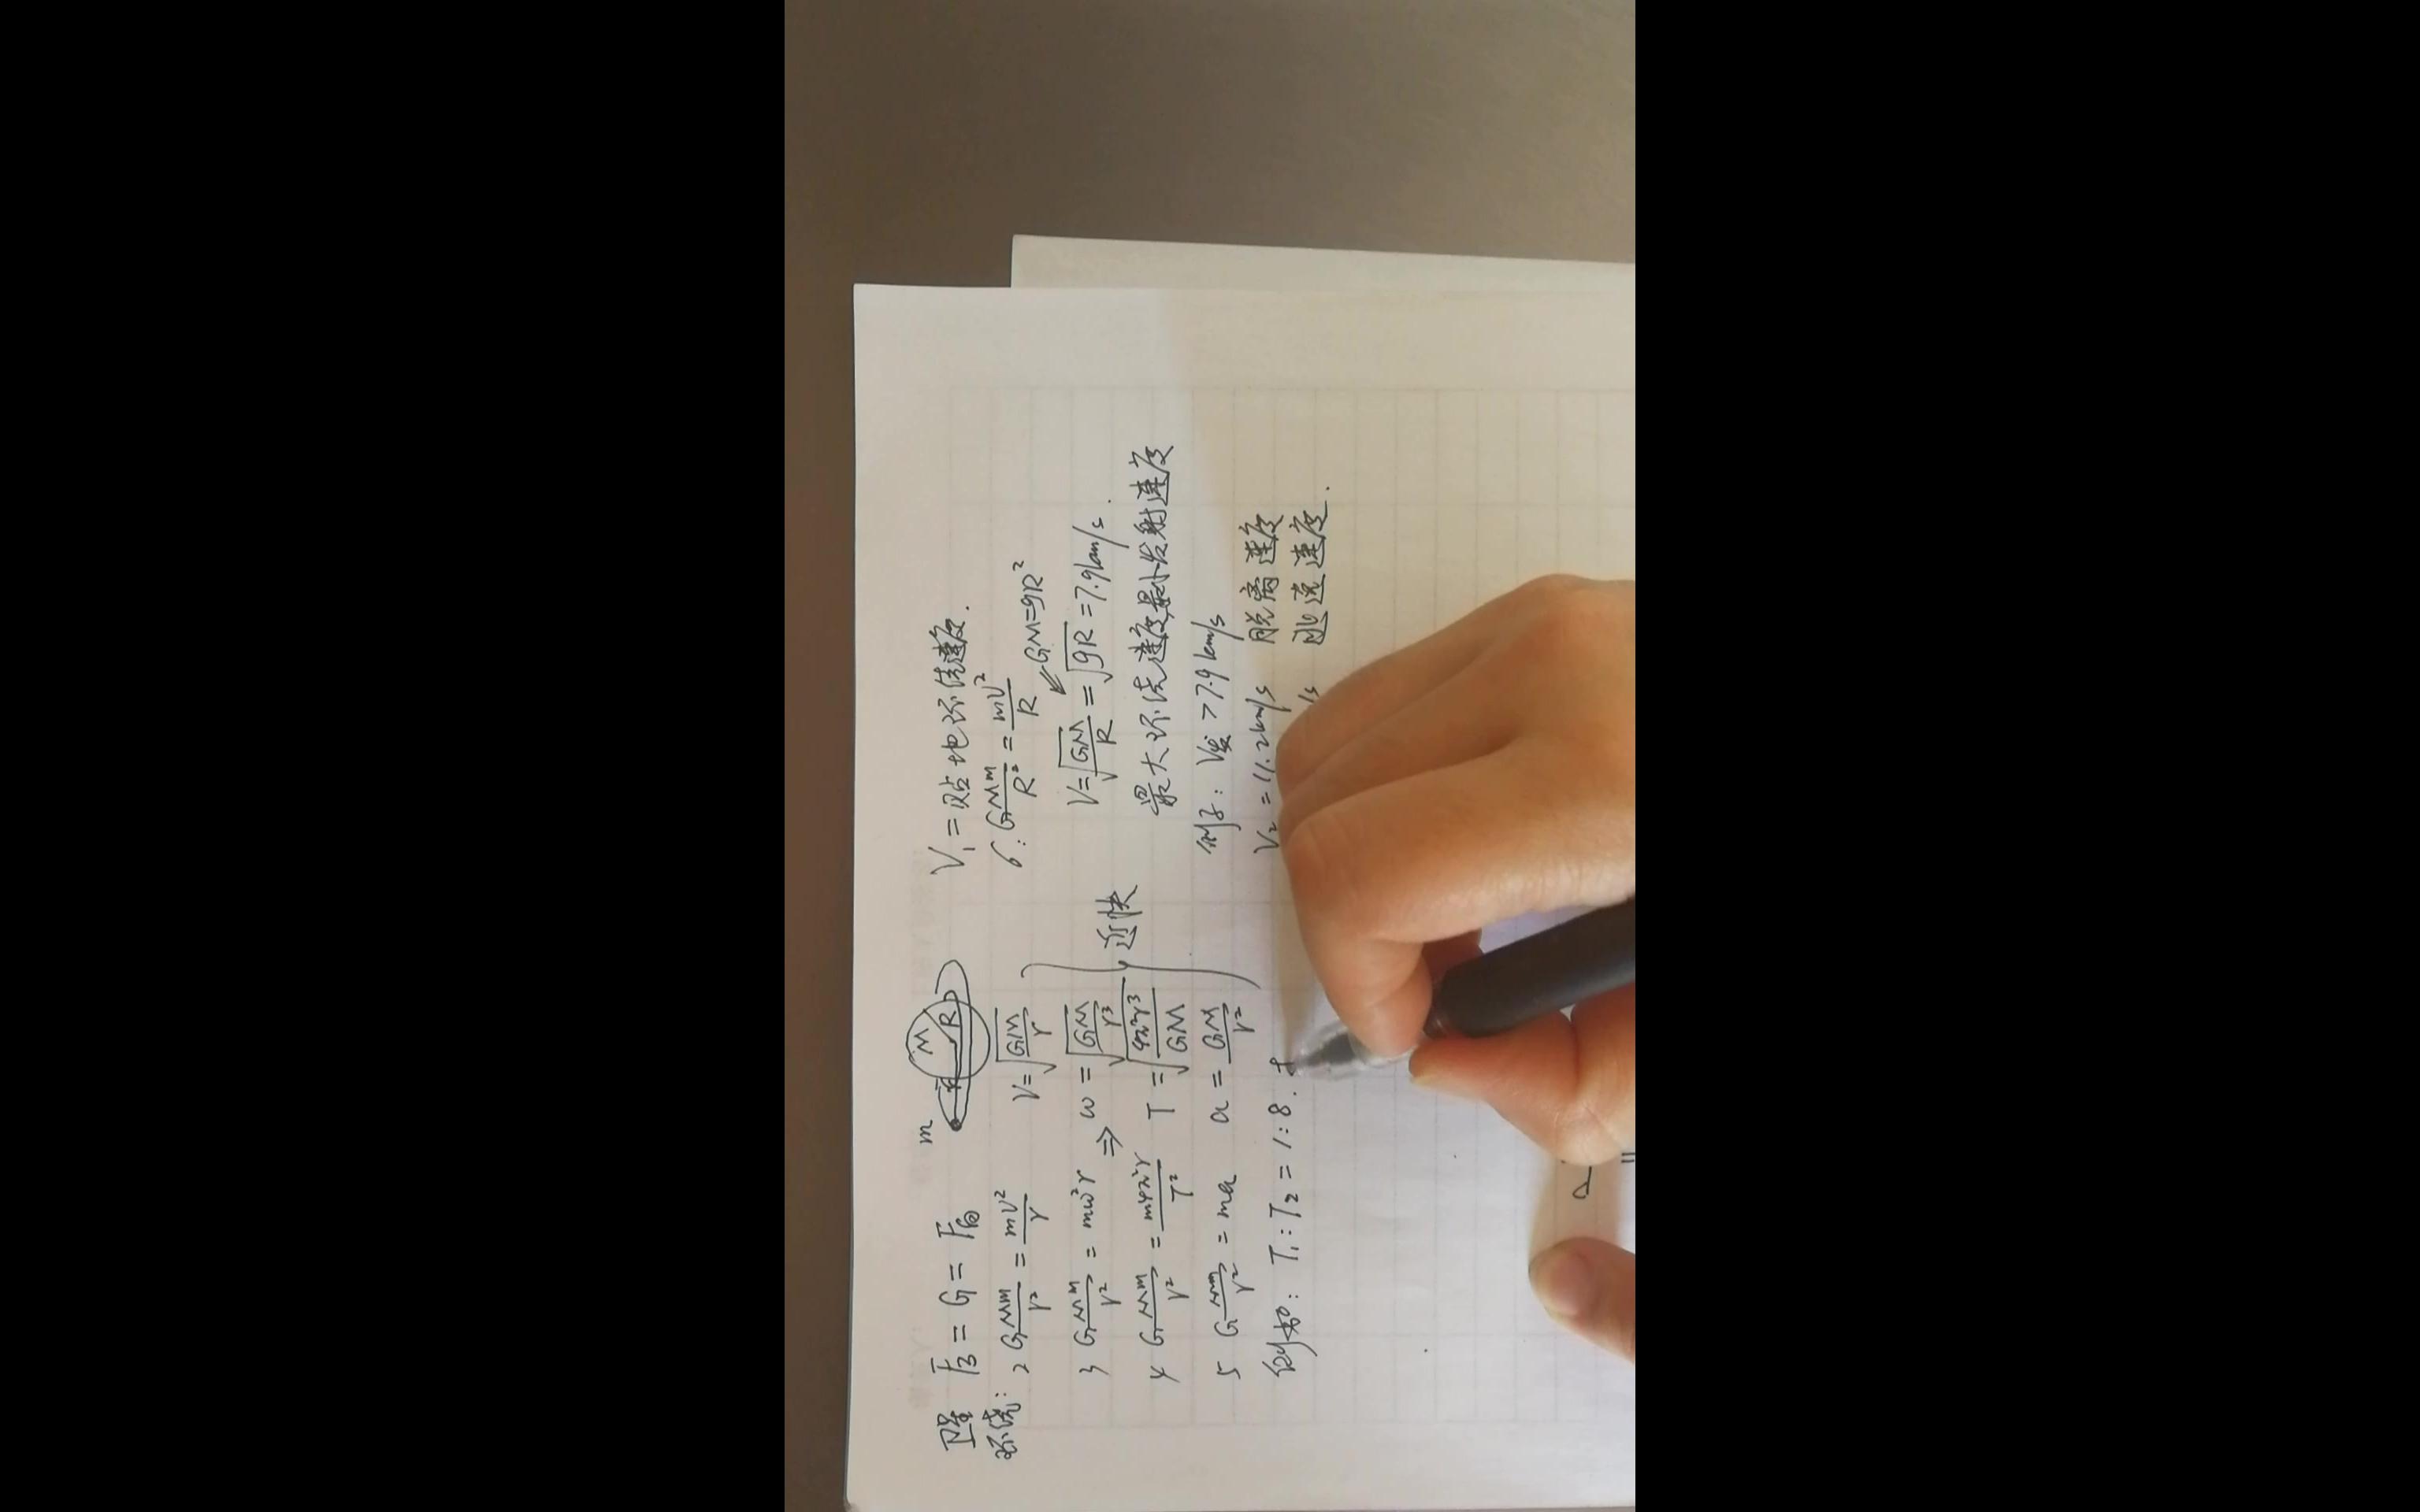 m M R
卫星 F万 = G = F向
环绕: 2 G\frac{Mm}{r²} = \frac{mv²}{r} V = \sqrt{\frac{GM}{r}}
3 G\frac{Mm}{r²} = mω²r ⇒ ω = \sqrt{\frac{GM}{r³}}
近快
4 G\frac{Mm}{r²} = \frac{m4π²r}{T²} T = \sqrt{\frac{4π²r³}{GM}}
5 G\frac{Mm}{r²} = ma a = \frac{GM}{r²}
例如: T₁:T₂ = 1:8.
V₁ = 贴地环绕速度.
6: G\frac{Mm}{R²} = \frac{mv²}{R}
⇙ GM=gR²
V = \sqrt{\frac{GM}{R}} = \sqrt{gR} = 7.9km/s.
最大环绕速度,最小发射速度
例子: V发 > 7.9km/s
V₂ = 11.2km/s 脱离速度
/s 逃逸速度.